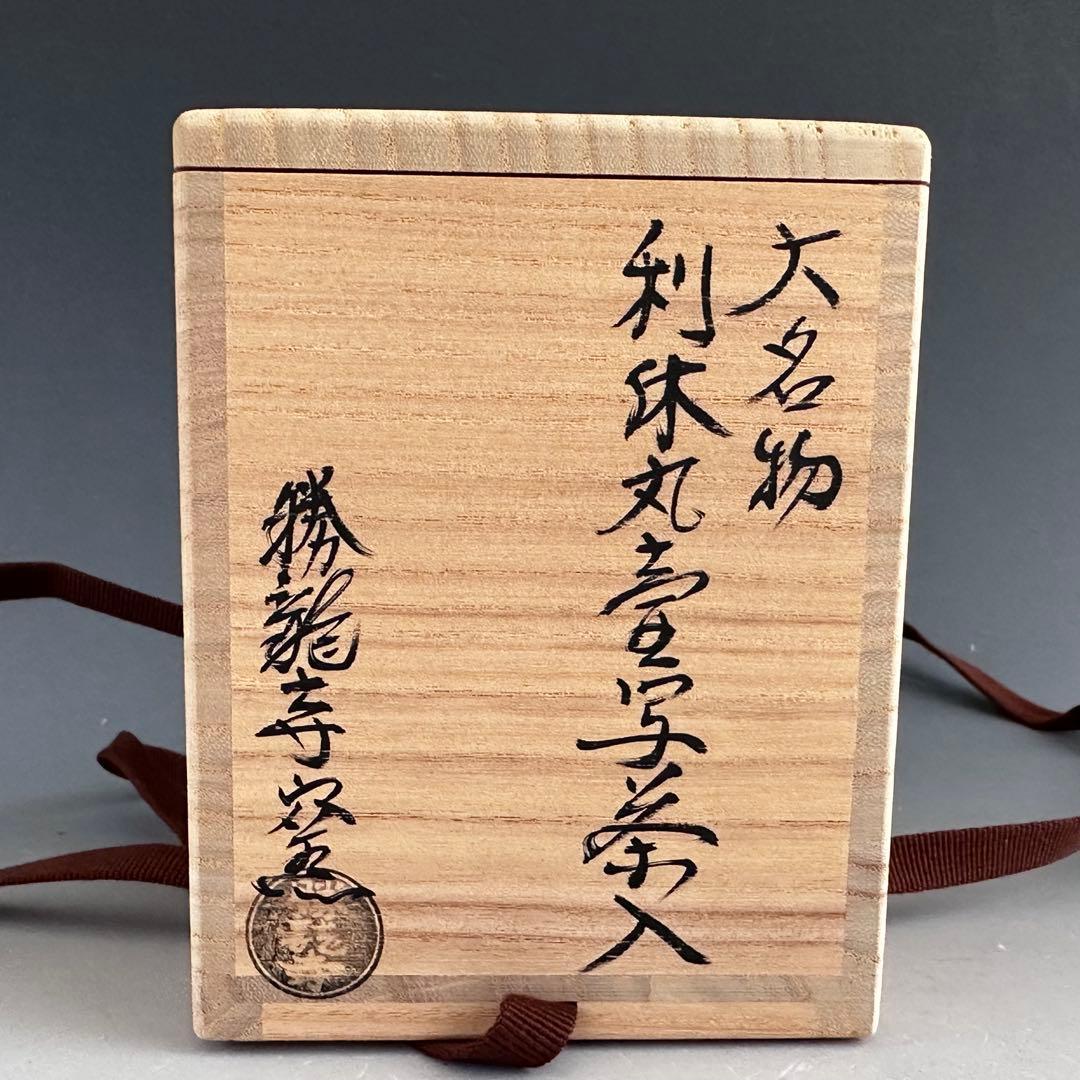 大名物
利休丸壷写茶入
勝龍寺窯